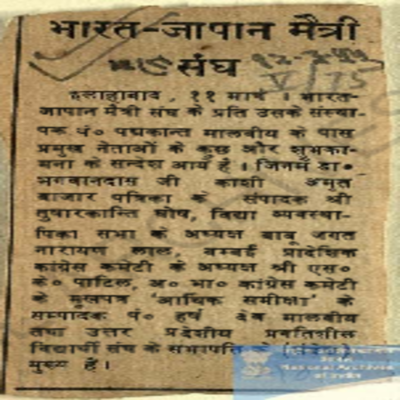 भारत-जापान मैत्री
संघ
इलाहाबाद, ११ मार्च । भारत-
जापान मैत्री संघ के प्रति उसके संस्था-
पक पं० पद्मकान्त मालवीय के पास
प्रमुख नेताओं के कुछ और शुभका-
मना के सन्देश आये हैं । जिनमें डा०
भगवानदास जी काशी अमृत
बाजार पत्रिका के संपादक श्री
तुषारकान्ति घोष, विद्या व्यवस्था-
पिका सभा के अध्यक्ष बाबू जगत
नारायण लाल, बम्बई प्रादेशिक
कांग्रेस कमेटी के अध्यक्ष श्री एस०
के० पाटिल, अ० भा० कांग्रेस कमेटी
के मुखपत्र 'आर्थिक समीक्षा' के
सम्पादक पं० हर्ष देव मालवीय
तथा उत्तर प्रदेशीय प्रगतिशील
विद्यार्थी संघ के सभापति के
मुख्य हैं ।